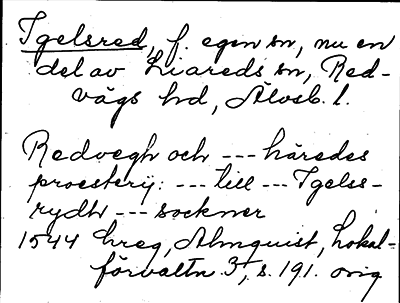 Igelsred, f. egen sn, nu en
del av Liareds sn, Red-
vägs hd, Älvsb. l.
Redvegh och --- häredes
proesterij: --- till --- Igelss-
rydh --- sockner
1544 breg, Almquist, Lokal-
förvaltn. 3, s. 191. orig